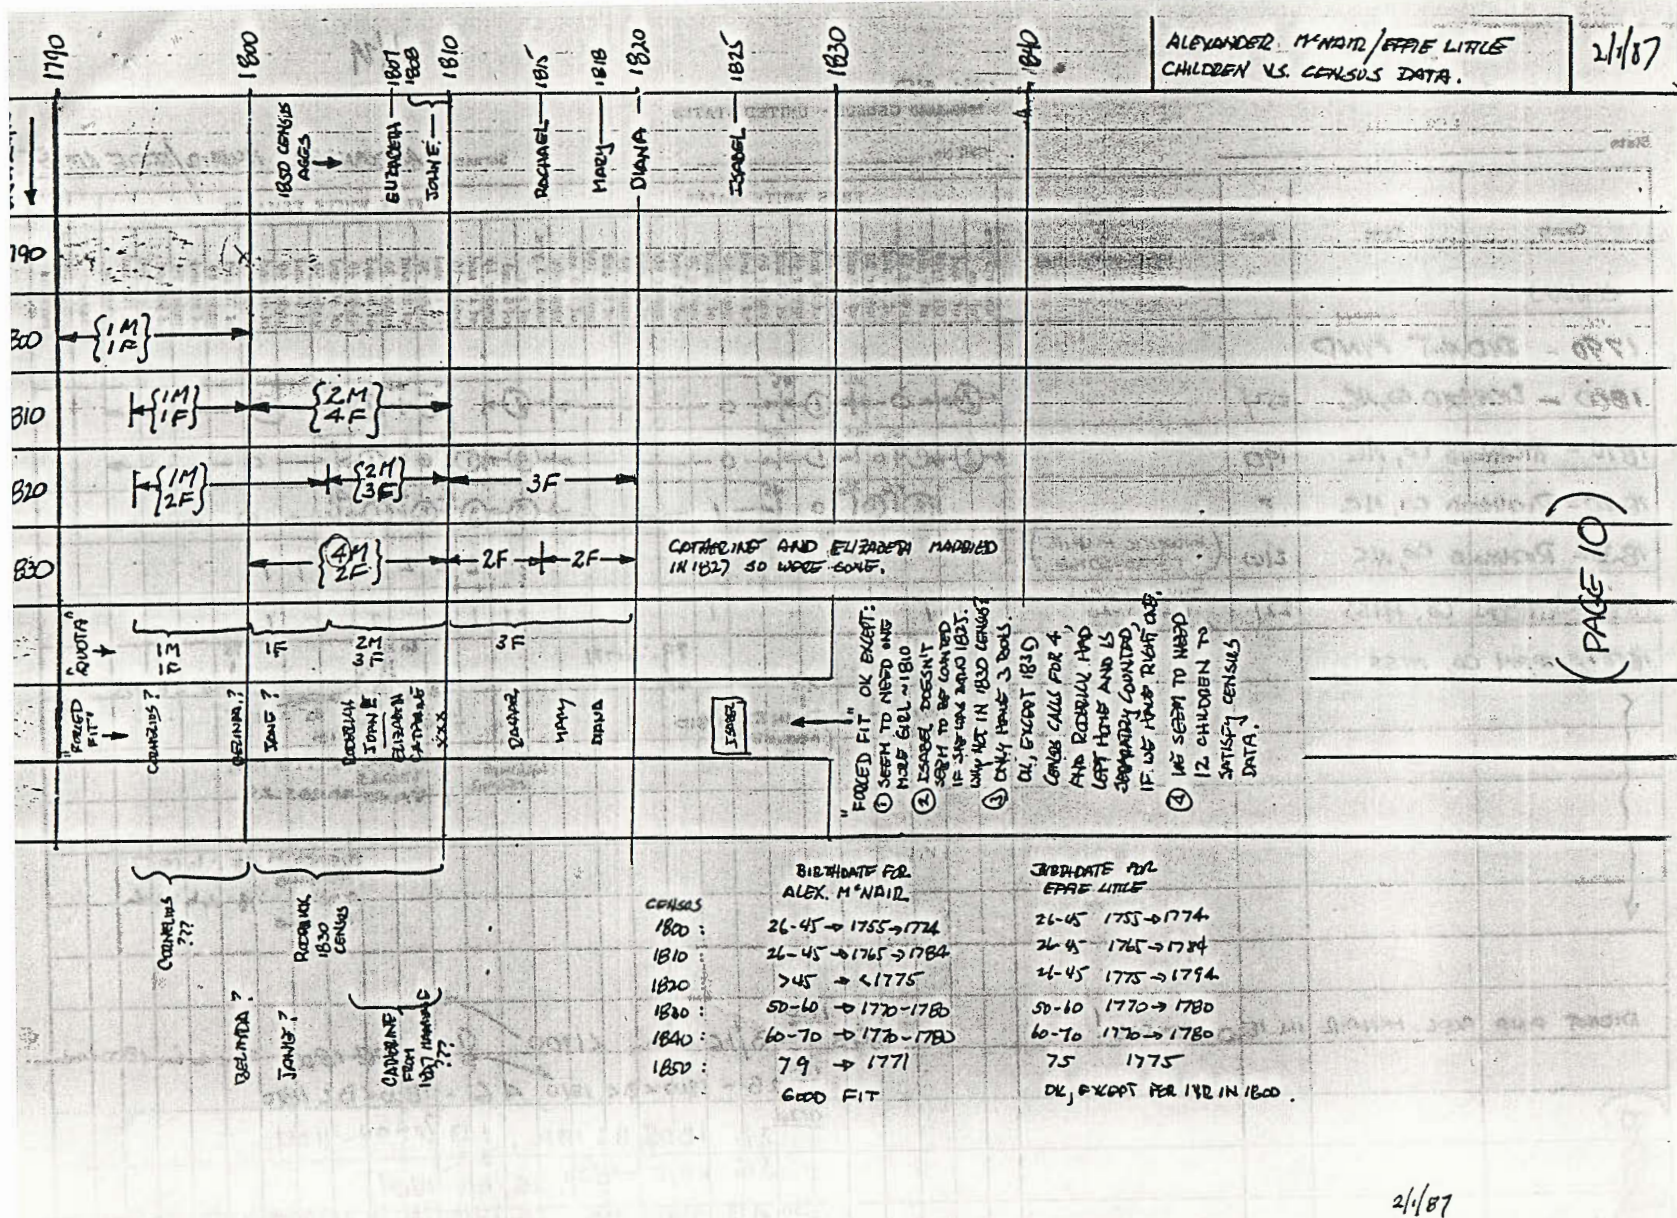 ALEXANDER McNAIR/EFFIE LITTLE
CHILDREN VS. CENSUS DATA.
2/1/87
1790
1800
1807
1808
1810
1815
1818
1820
1825
1830
1840
1850 CENSUS
AGES
ELIZABETH
JOHN E.
RACHAEL
MARY
DIANA
ISABEL
790
800
1M
1F
810
1M
1F
2M
4F
820
1M
2F
2M
3F
3F
830
4M
2F
2F
2F
CATHERINE AND ELIZABETH MARRIED
IN 1827 SO WERE GONE.
"QUOTA"
1M
1F
1F
2M
3F
3F
"FORCED
FIT"
CORNELIUS?
BELINDA?
JANE?
RODERICK
JOHN E.
ELIZABETH
CATHARINE
XXX
RACHAEL
MARY
DIANA
ISABEL
"FORCED FIT" OK EXCEPT:
① SEEM TO NEED ONE
MORE GIRL ~1810
② ISABEL DOESN'T
SEEM TO BE COUNTED
IF SHE WAS BORN 1825.
WHY NOT IN 1830 CENSUS?
③ ONLY HAVE 3 BOYS.
OK, EXCEPT 1830
CENSUS CALLS FOR 4,
AND RODERICK HAD
LEFT HOME AND IS
SEPARATELY COUNTED,
IF WE HAVE RIGHT ONE.
④ WE SEEM TO NEED
12 CHILDREN TO
SATISFY CENSUS
DATA.
(PAGE 10)
CORNELIUS
???
RODERICK
1830
CENSUS
BELINDA?
JANE?
CATHERINE
FROM
1827 MARRIAGE
???
CENSUS
BIRTHDATE FOR
ALEX. McNAIR
BIRTHDATE FOR
EFFIE LITTLE
1800: 26-45 → 1755→1774 26-45 1755→1774
1810: 26-45 → 1765→1784 26-45 1765→1784
1820 >45 → <1775 26-45 1775→1794
1830: 50-60 → 1770-1780 50-60 1770→1780
1840: 60-70 → 1770-1780 60-70 1770→1780
1850: 79 → 1771 75 1775
GOOD FIT OK, EXCEPT FOR 1YR IN 1800.
2/1/87